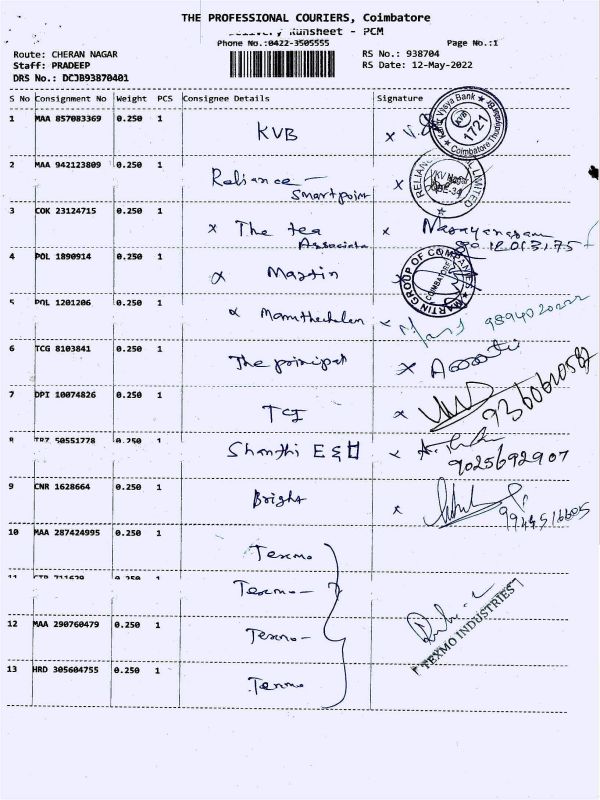 THE PROFESSIONAL COURIERS, Coimbatore
Delivery Runsheet - PCM
Phone No.:0422-3505555 Page No.:1
Route: CHERAN NAGAR RS No.: 938704
Staff: PRADEEP RS Date: 12-May-2022
DRS No.: DCJB93870401
S No Consignment No Weight PCS Consignee Details Signature
1 MAA 857083369 0.250 1 KVB x
Karur Vysya Bank 1721 Coimbatore
2 MAA 942123809 0.250 1 Reliance - Smartpoint x
LIMITED
3 COK 23124715 0.250 1 x The tea Associate x Narayanasam
80.12.01.31.75
4 POL 1890914 0.250 1 Martin
MARTIN GROUP OF COMPANIES COIMBATORE
5 POL 1201206 0.250 1 x
9894020222
6 TCG 8103841 0.250 1 The principal x
7 DPI 10074826 0.250 1 TCI x
9360610587
8 50551778 0.250 1 Shanthi x
9025692907
9 CNR 1628664 0.250 1 Bright x
9944516605
10 MAA 287424995 0.250 1 Texmo
11 0.250 1 Texmo -
12 MAA 290760479 0.250 1 Texmo -
TEXMO INDUSTRIES
13 HRD 305604755 0.250 1 Texmo